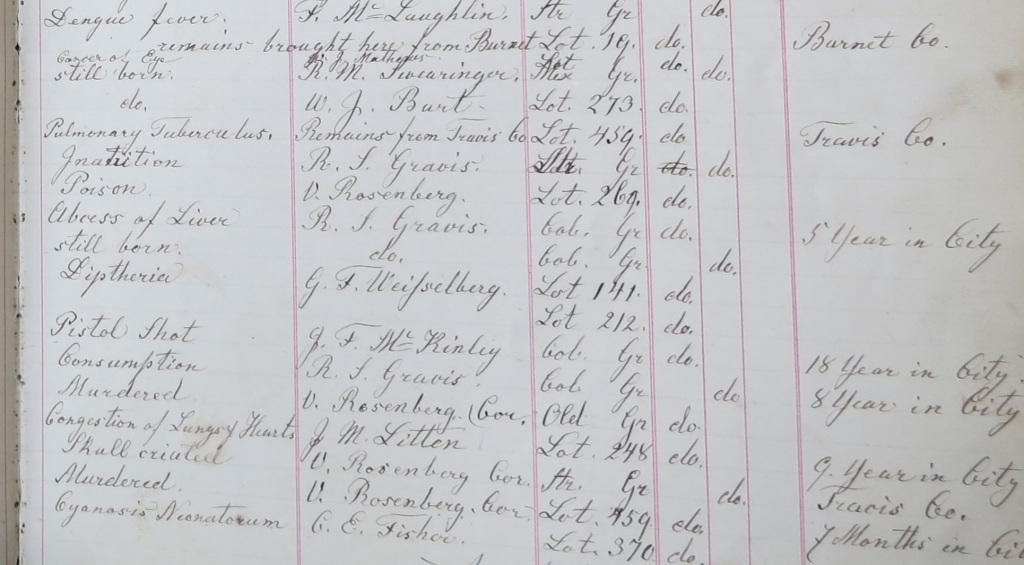 Dengue fever. F. Mc Laughlin. Str Gr do.
remains brought here from Burnet Lot. 19. do. Burnet Co.
Cancer of Eye Mathews Lot do.
still born. R. M. Swearinger. Mex Gr. do.
do. W. J. Burt Lot. 273. do.
Pulmonary Tuberculus. Remains from Travis Co Lot. 459. do. Travis Co.
Inanition R. S. Gravis. Str. Gr do. do.
Poison. V. Rosenberg. Lot. 269. do.
Abcess of Liver R. S. Gravis. Col. Gr do. 5 Year in City
still born. do. Col. Gr. do.
Diptheria G. F. Weisselberg. Lot 141. do.
Lot 212. do.
Pistol Shot J. F. Mc Kinley Col. Gr do. 18 Year in City.
Consumption R. S. Gravis. Col Gr do 8 Year in City
Murdered V. Rosenberg. (Cor. Old Gr do.
Congestion of Lungs & Hearts J. M. Litten Lot. 248 do. 9. Year in City
Skull V. Rosenberg Cor. Str. Gr do. Travis Co.
Murdered. V. Rosenberg. Cor Lot. 459. do. 7 Months in
Cyanosis Neonatorum C. E. Fisher. Lot. 370 do.